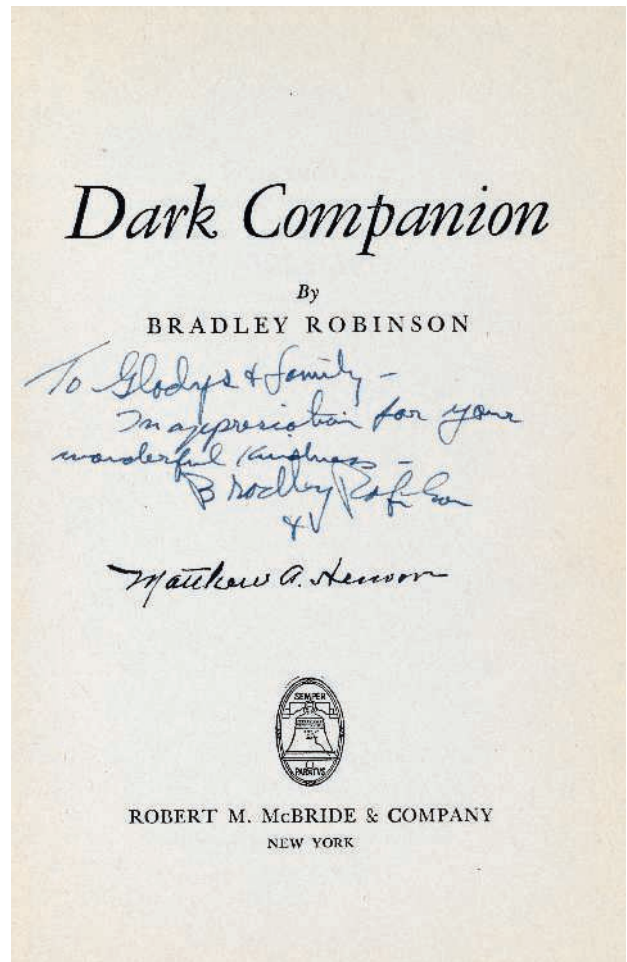 Dark Companion
By
BRADLEY ROBINSON
To Gladys & family –
In appreciation for your
wonderful kindness –
Bradley Robinson
&
Matthew A. Henson
SEMPER
PARATVS
ROBERT M. McBRIDE & COMPANY
NEW YORK